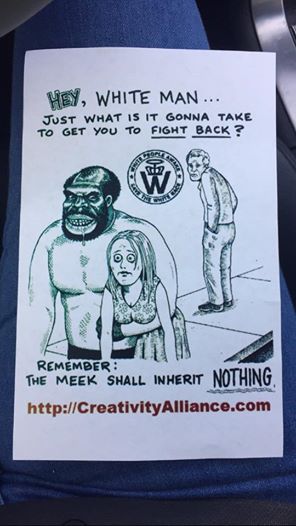 HEY, WHITE MAN...
JUST WHAT IS IT GONNA TAKE
TO GET YOU TO FIGHT BACK?
WHITE PEOPLE AWAKE
SAVE THE WHITE RACE
W
REMEMBER:
THE MEEK SHALL INHERIT NOTHING
http://CreativityAlliance.com